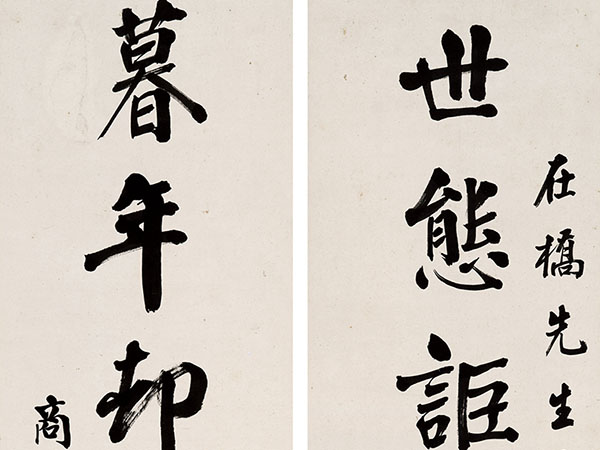 在橋先生
世態詎
暮年却
商